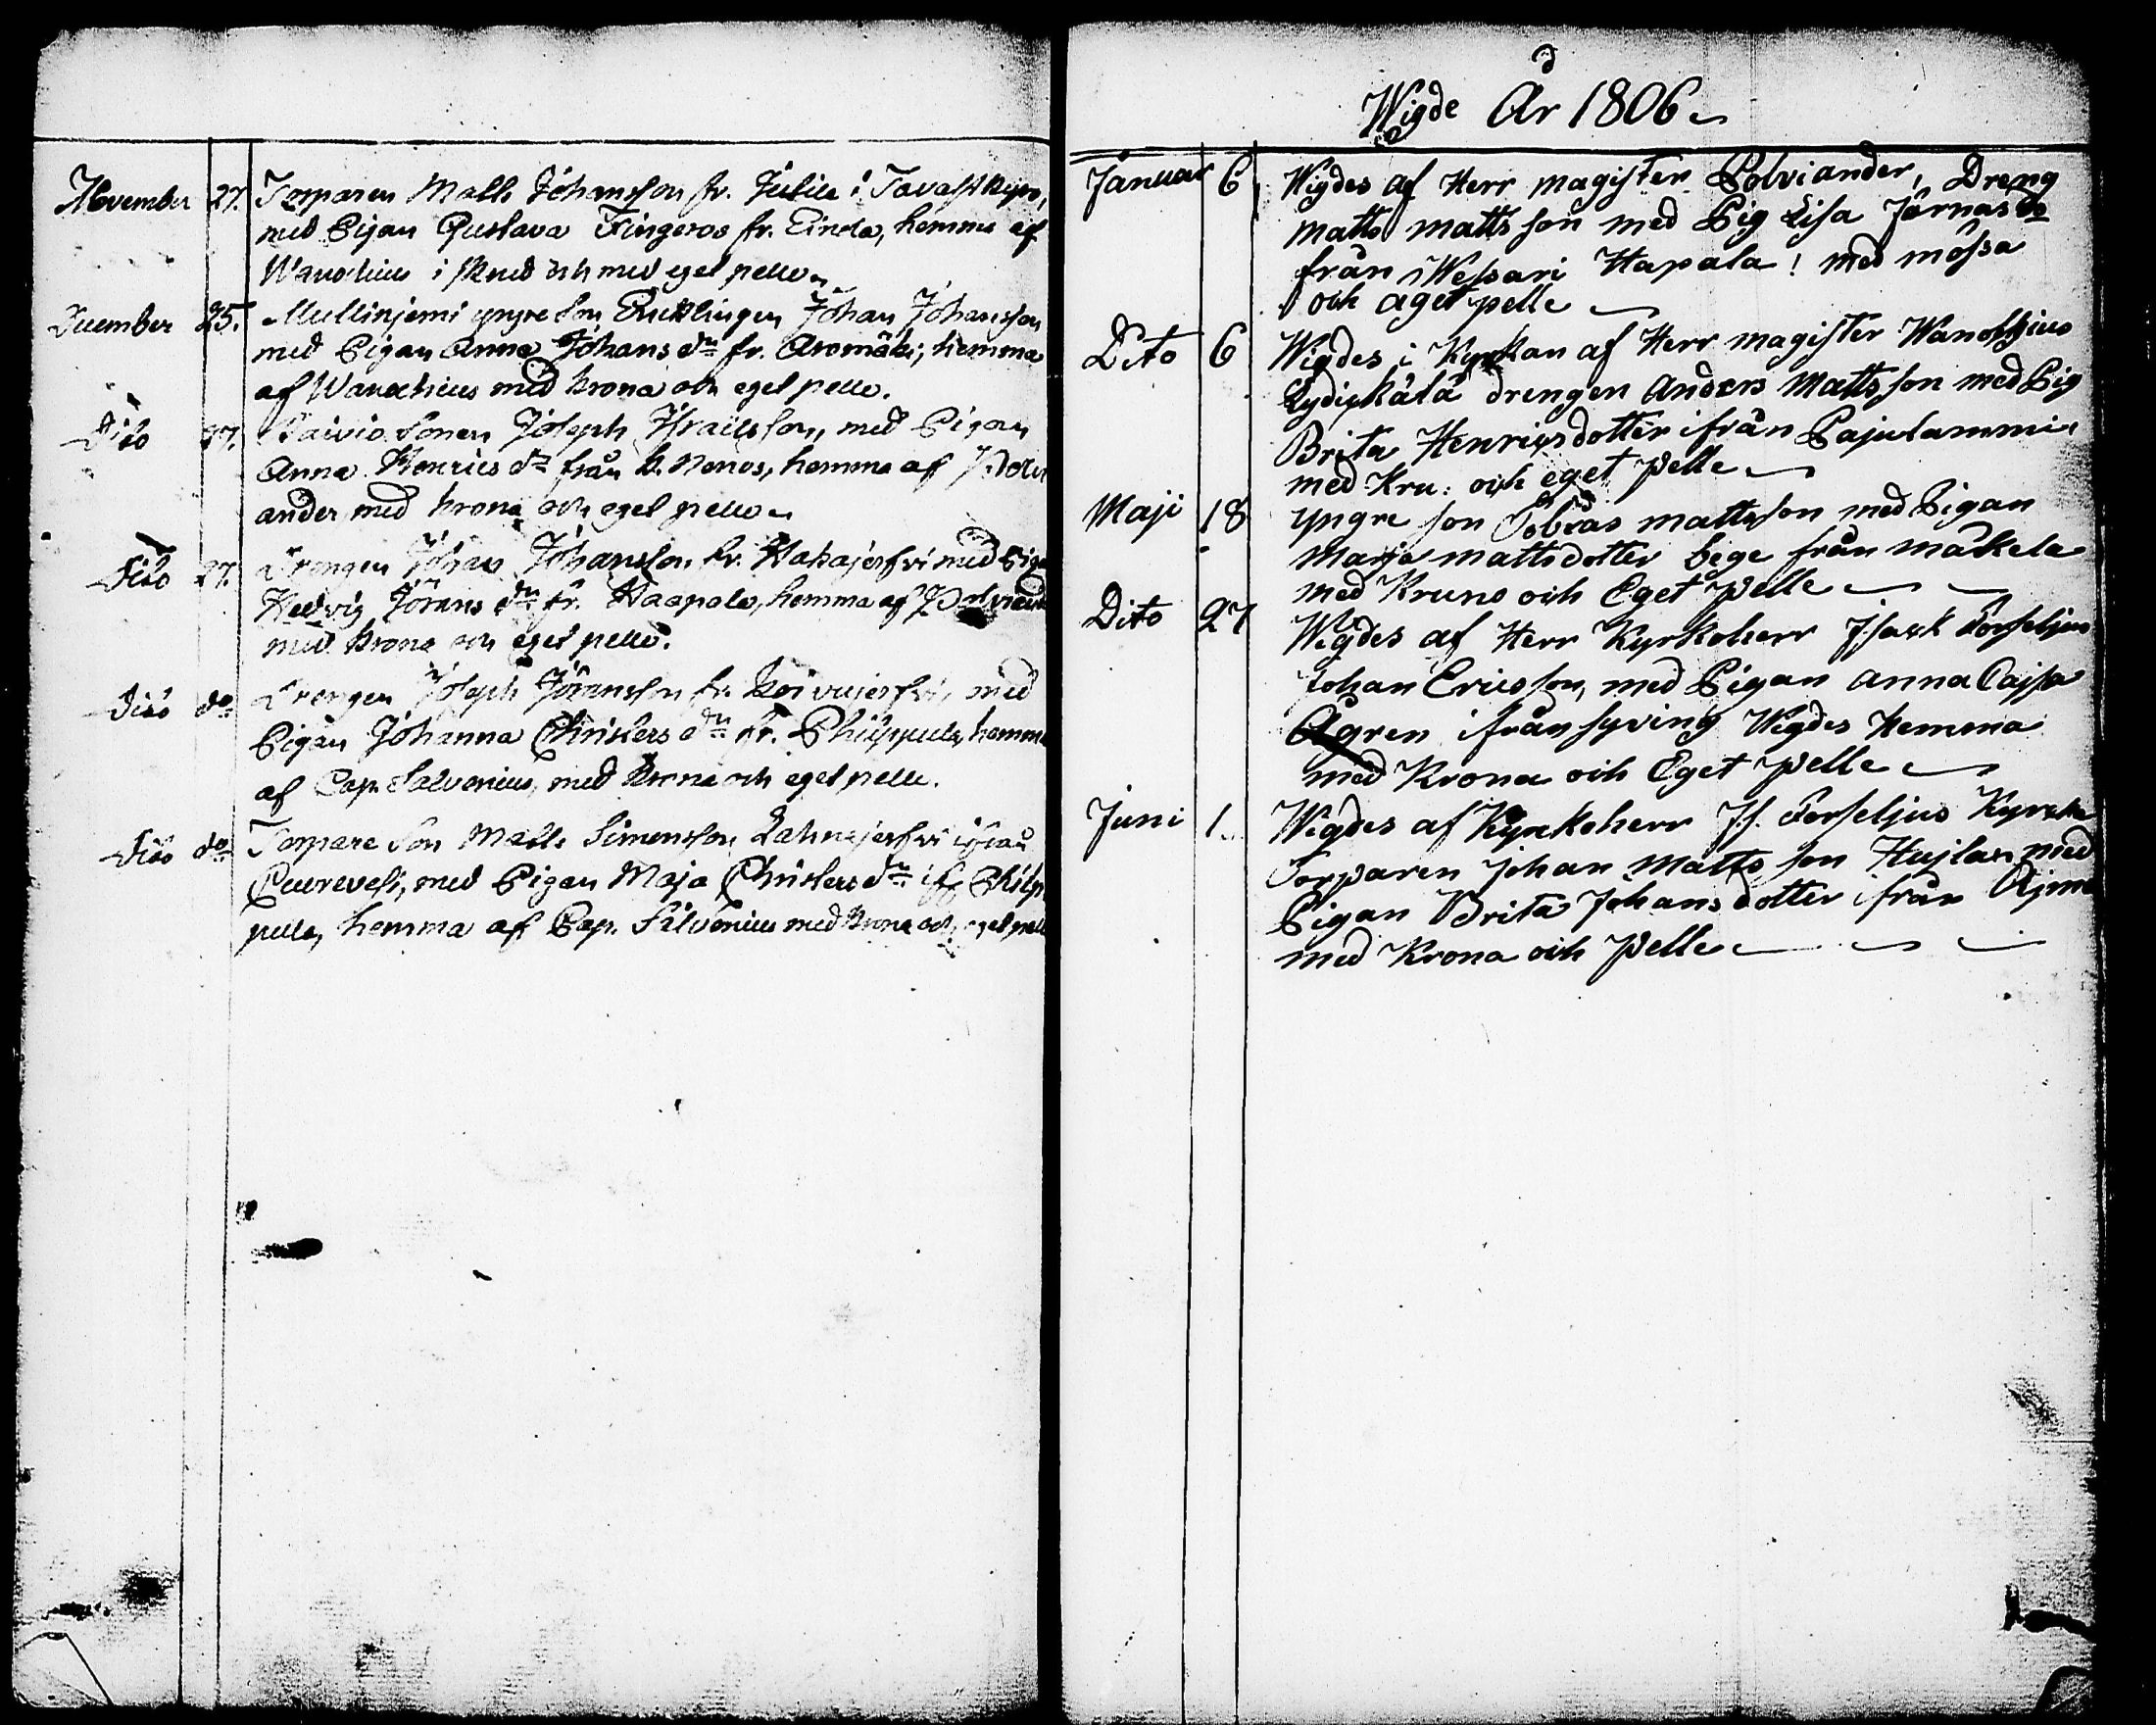 November 27. Torparen Matts Johansson fr. Julia i Tavastkyro,
med Pigan Gustava Fingeroos fr. Einola, hemma af
Wanochius i skrud och med eget pelle
December 25. Mullinjemi yngre Son Rucklingen Johan Johansson
med Pigan Anna Johans dr fr. Asomäki, hemma
af Wanochius med krona och eget pelle.
Dito 27. Paivio Sonen Joseph Israelsson, med Pigan
Anna Henrics dr från hemma af Polvi
ander, med krona och eget pelle
Dito 27. Drengen Johan Johansson fr. Hakajerfvi med Piga
Hedvig Jörans dr fr. Haapala, hemma af Polviand
med krona och eget pelle.
Dito do Drengen Joseph Jöransson fr. Koivujerfvi, med
Pigan Johanna Christers dr fr. Philppula, hemma
af Cap. Salvenius, med Krona och eget pelle.
Dito do Torpare Son Matts Simonsson Lahnajerfvi ifrån
med Pigan Maja Christers dr ifr. Philp
pula, hemma af Cap. Salvenius med krona och eget pelle
Wigde År 1806
Januar 6 Wigdes af Herr magister Polviander, Dreng
matts matts son med Pig Lisa Järnas do
från Wessari Hapala! med mössa
och aget pelle
Dito 6 Wigdes i Kyrkan af Herr magister Wanochius
drengen Anders Mattsson med Pig
Brita Henrigsdotter ifrån Pajulammi
med Kru: och eget pelle
Maji 18 yngre son Tobias mattsson med Pigan
Marja mattsdotter bege från mäkela
med Kruno och Eget pelle
Dito 27 Wigdes af Herr Kyrkoherr Isack Forseljus
Johan Ericsson, med Pigan anna Cajsa
Ågren ifrån syving Wigdes Hemma
med Krona och Eget pelle
Juni 1. Wigdes af Kyrkoherr Is. Forseljus Kyrcko
Torparen Johan Matts son Hujlan med
Pigan Brita Johansdotter från
med Krona och Pelle